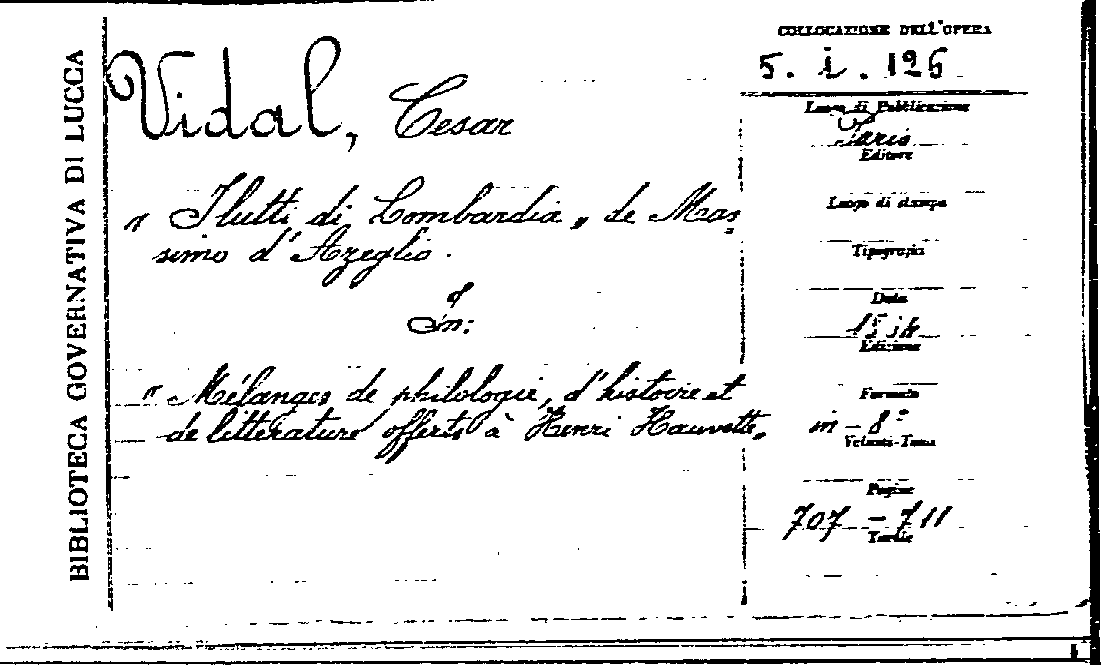 BIBLIOTECA GOVERNATIVA DI LUCCA
Vidal, Cesar
" I lutti di Lombardia „ de Mas„
simo d'Azeglio.
In:
" Mélanges de philologie, d'histoire et
de littérature offerts à Henri Hauvette„
COLLOCAZIONE DELL'OPERA
5. i. 126
Luogo di Pubblicazione
Paris
Editore
Luogo di stampa
Tipografia
Data
Edizione
Formato
in - 8°
Volumi-Tomi
Pagine
707 - 711
Tavole